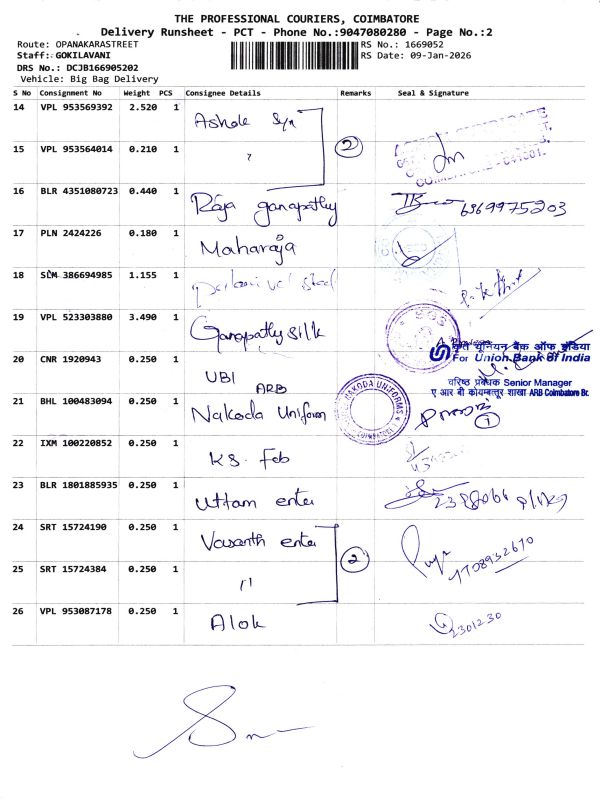 THE PROFESSIONAL COURIERS, COIMBATORE
Delivery Runsheet - PCT - Phone No.:9047080280 - Page No.:2
Route: OPANAKARASTREET
RS No.: 1669052
Staff: GOKILAVANI
RS Date: 09-Jan-2026
DRS No.: DCJB166905202
Vehicle: Big Bag Delivery
S No Consignment No Weight PCS Consignee Details Remarks Seal & Signature
14 VPL 953569392 2.520 1 Ashok
15 VPL 953564014 0.210 1 2
16 BLR 4351080723 0.440 1 Raja ganapathy 6369975203
17 PLN 2424226 0.180 1 Maharaja
18 SLM 386694985 1.155 1
19 VPL 523303880 3.490 1 Ganapathy silk
यूनियन बैंक ऑफ इंडिया
For Union Bank of India
20 CNR 1920943 0.250 1 UBI ARB
वरिष्ठ प्रबंधक Senior Manager
ए आर बी कोयम्बत्तूर शाखा ARB Coimbatore Br.
21 BHL 100483094 0.250 1 Nakoda Uniform NAKODA UNIFORMS COIMBATORE 1
22 IXM 100220852 0.250 1 KS. Feb
23 BLR 1801885935 0.250 1 Uttam enter
24 SRT 15724190 0.250 1 Vasanth enter
25 SRT 15724384 0.250 1 11 2
26 VPL 953087178 0.250 1 Alok 2301230